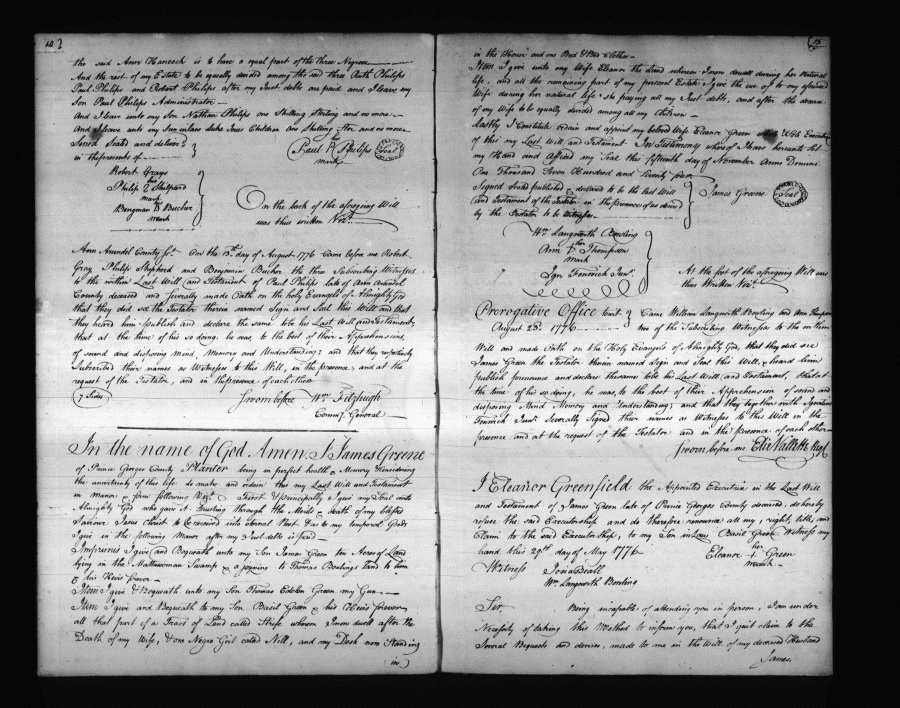 the said Ann Hancock is to have a equal part of the three Negroes
And the rest of my Estate to be equally devided among the said three Ruth Philips
Paul Philips and Robert Philips after my Just debts are paid and I leave my
Son Paul Philips Administrator
And I leave unto my Son Nathan Philips one Shilling Sterling and no more
And I leave unto my Son in law Children one Shilling Ster. and no more
Signed Seald and deliver'd
in the presents of
his
Paul P Philips Seal
mark
Robert Grays
his
Philip Shippard
mark
Bengman B Bucher
mark
On the back of the aforegoing Will
was thus written Vizt.
Ann Arundel County Sct. On the 13th. day of August 1776 Came before me Robert
Gray Philip Shepherd and Benjamin Bucher the three Subscribing Witnesses
to the within Last Will and Testament of Paul Philips late of Ann Arundel
County deceased and Severally made Oath on the holy Evangels of Almighty God
that they did see the Testator therein named Sign and Seal this Will and that
they heard him Publish and declare the same to be his Last Will and Testament,
that at the time of his so doing, he was, to the best of their Apprehensions,
of sound and disposing Mind, Memory and Understanding; and that they respectively
Subscribed their names as Witnesses to this Will, in the presence, and at the
request of the Testator, and in the presence of each other
7 Sides
Sworn before Wm. Fitzhugh
Commy. General
In the name of God Amen I James Greene
of Prince Georges County Planter being in perfect health & Memory Considering
the uncertainty of this life do make and ordain this my Last Will and Testament
in Manner & form following Vizt. First & principally I give my Soul unto
Almighty God who gave it trusting through the Merits & death of my blessed
Saviour Jesus Christ to be received into eternal rest & as to my temporal Goods
I give in the following Manner after my Just debts is paid
Imprimis I give and Bequeath unto my Son James Green ten Acres of Land
lying in the Mattawoman Swamp & a joyning to Thomas Bowlings land to him
& his Heirs forever
Item I give & Bequeath unto my Son Thomas Edelen Green my Gun
Item I give and Bequeath to my Son Basil Green & his Heirs forever
all that part of a Tract of Land called Strife whereon I now dwell after the
Death of my Wife, & one Negro Girl called Nell, and my Desk now Standing
(in)
15
in the House and one Bed & Bed Clothes
Item I give unto my Wife Eleanor the Land whereon I now dwell during her Natural
life, and all the remaining part of my personal Estate I give the use of to my aforesaid
Wife during her natural life She paying all my Just debts, and after the decease
of my Wife to be equally divided among all my Children
Lastly I Constitute ordain and appoint my beloved Wife Eleanor Green Executrix
of this my Last Will and Testament In Testimony whereof I have hereunto Set
my Hand and Affixed my Seal this fifteenth day of November Anno Domini
One Thousand Seven Hundred and Seventy four
Signed Sealed published & declared to be the last Will
and Testament of the Testator in the presence of us desired
by the Testator to be Witnesses
James Greene Seal
Wm. Langworth Bowling
her
Ann Thompson
mark
Ign. Fenwick Junr.
At the foot of the aforegoing Will was
thus Written Vizt.
Prerogative Office
August 23d. 1776
Came William Langworth Bowling and Ann Thompson
two of the Subscribing Witnesses to the within
Will and made Oath on the Holy Evangels of Almighty God, that they did see
James Green the Testator therein named Sign and Seal this Will, & heard him
publish pronounce and declare the same to be his Last Will and Testament, that at
the time of his so doing, he was, to the best of their Apprehension of sound and
disposing Mind Memory and Understanding; and that they together with Ignatius
Fenwick Junr. Severally Signed their names as Witnesses to this Will in the
presence and at the request of the Testator and in the presence of each other
Sworn before me Elie Vallette Regr.
I Eleanor Greenfield the Appointed Executrix in the Last Will
and Testament of James Green late of Prince Georges County deceased, do hereby
refuse the said Executorship and do therefore renounce all my, right, title, and
Claim to the said Executorship, to my Son in Law Basil Green Witness my
hand this 29th day of May 1776
her
Eleanor + Green
mark
Witness Josia Beall
Wm. Langworth Bowling
Sir, Being incapable of attending you in person, I am under
Necessity of taking this Method to inform you, that I quit claim to the
Several Bequests and devises, made to me in the Will of my deceased Husband
James.